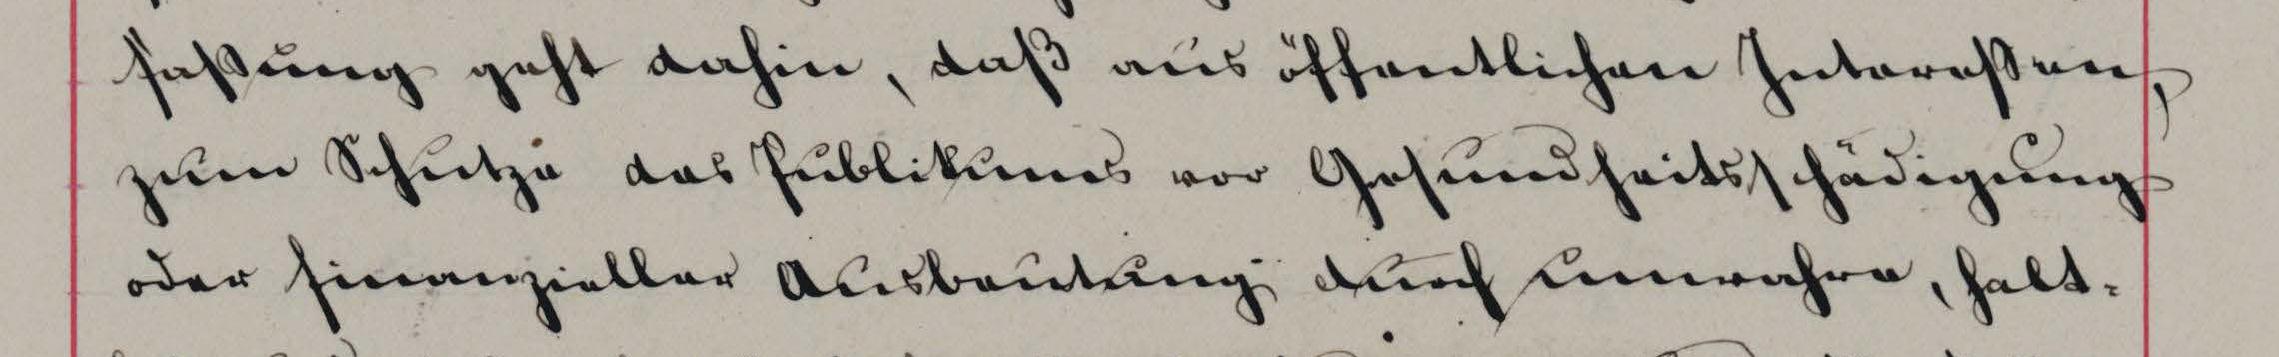 faßung geht dahin, daß aus öffentlichenIntereßen,
zum Schutze des Publikums vor Gesundheitsschädigung
oder finanzieller Ausbeutung durch unwahre, halt-